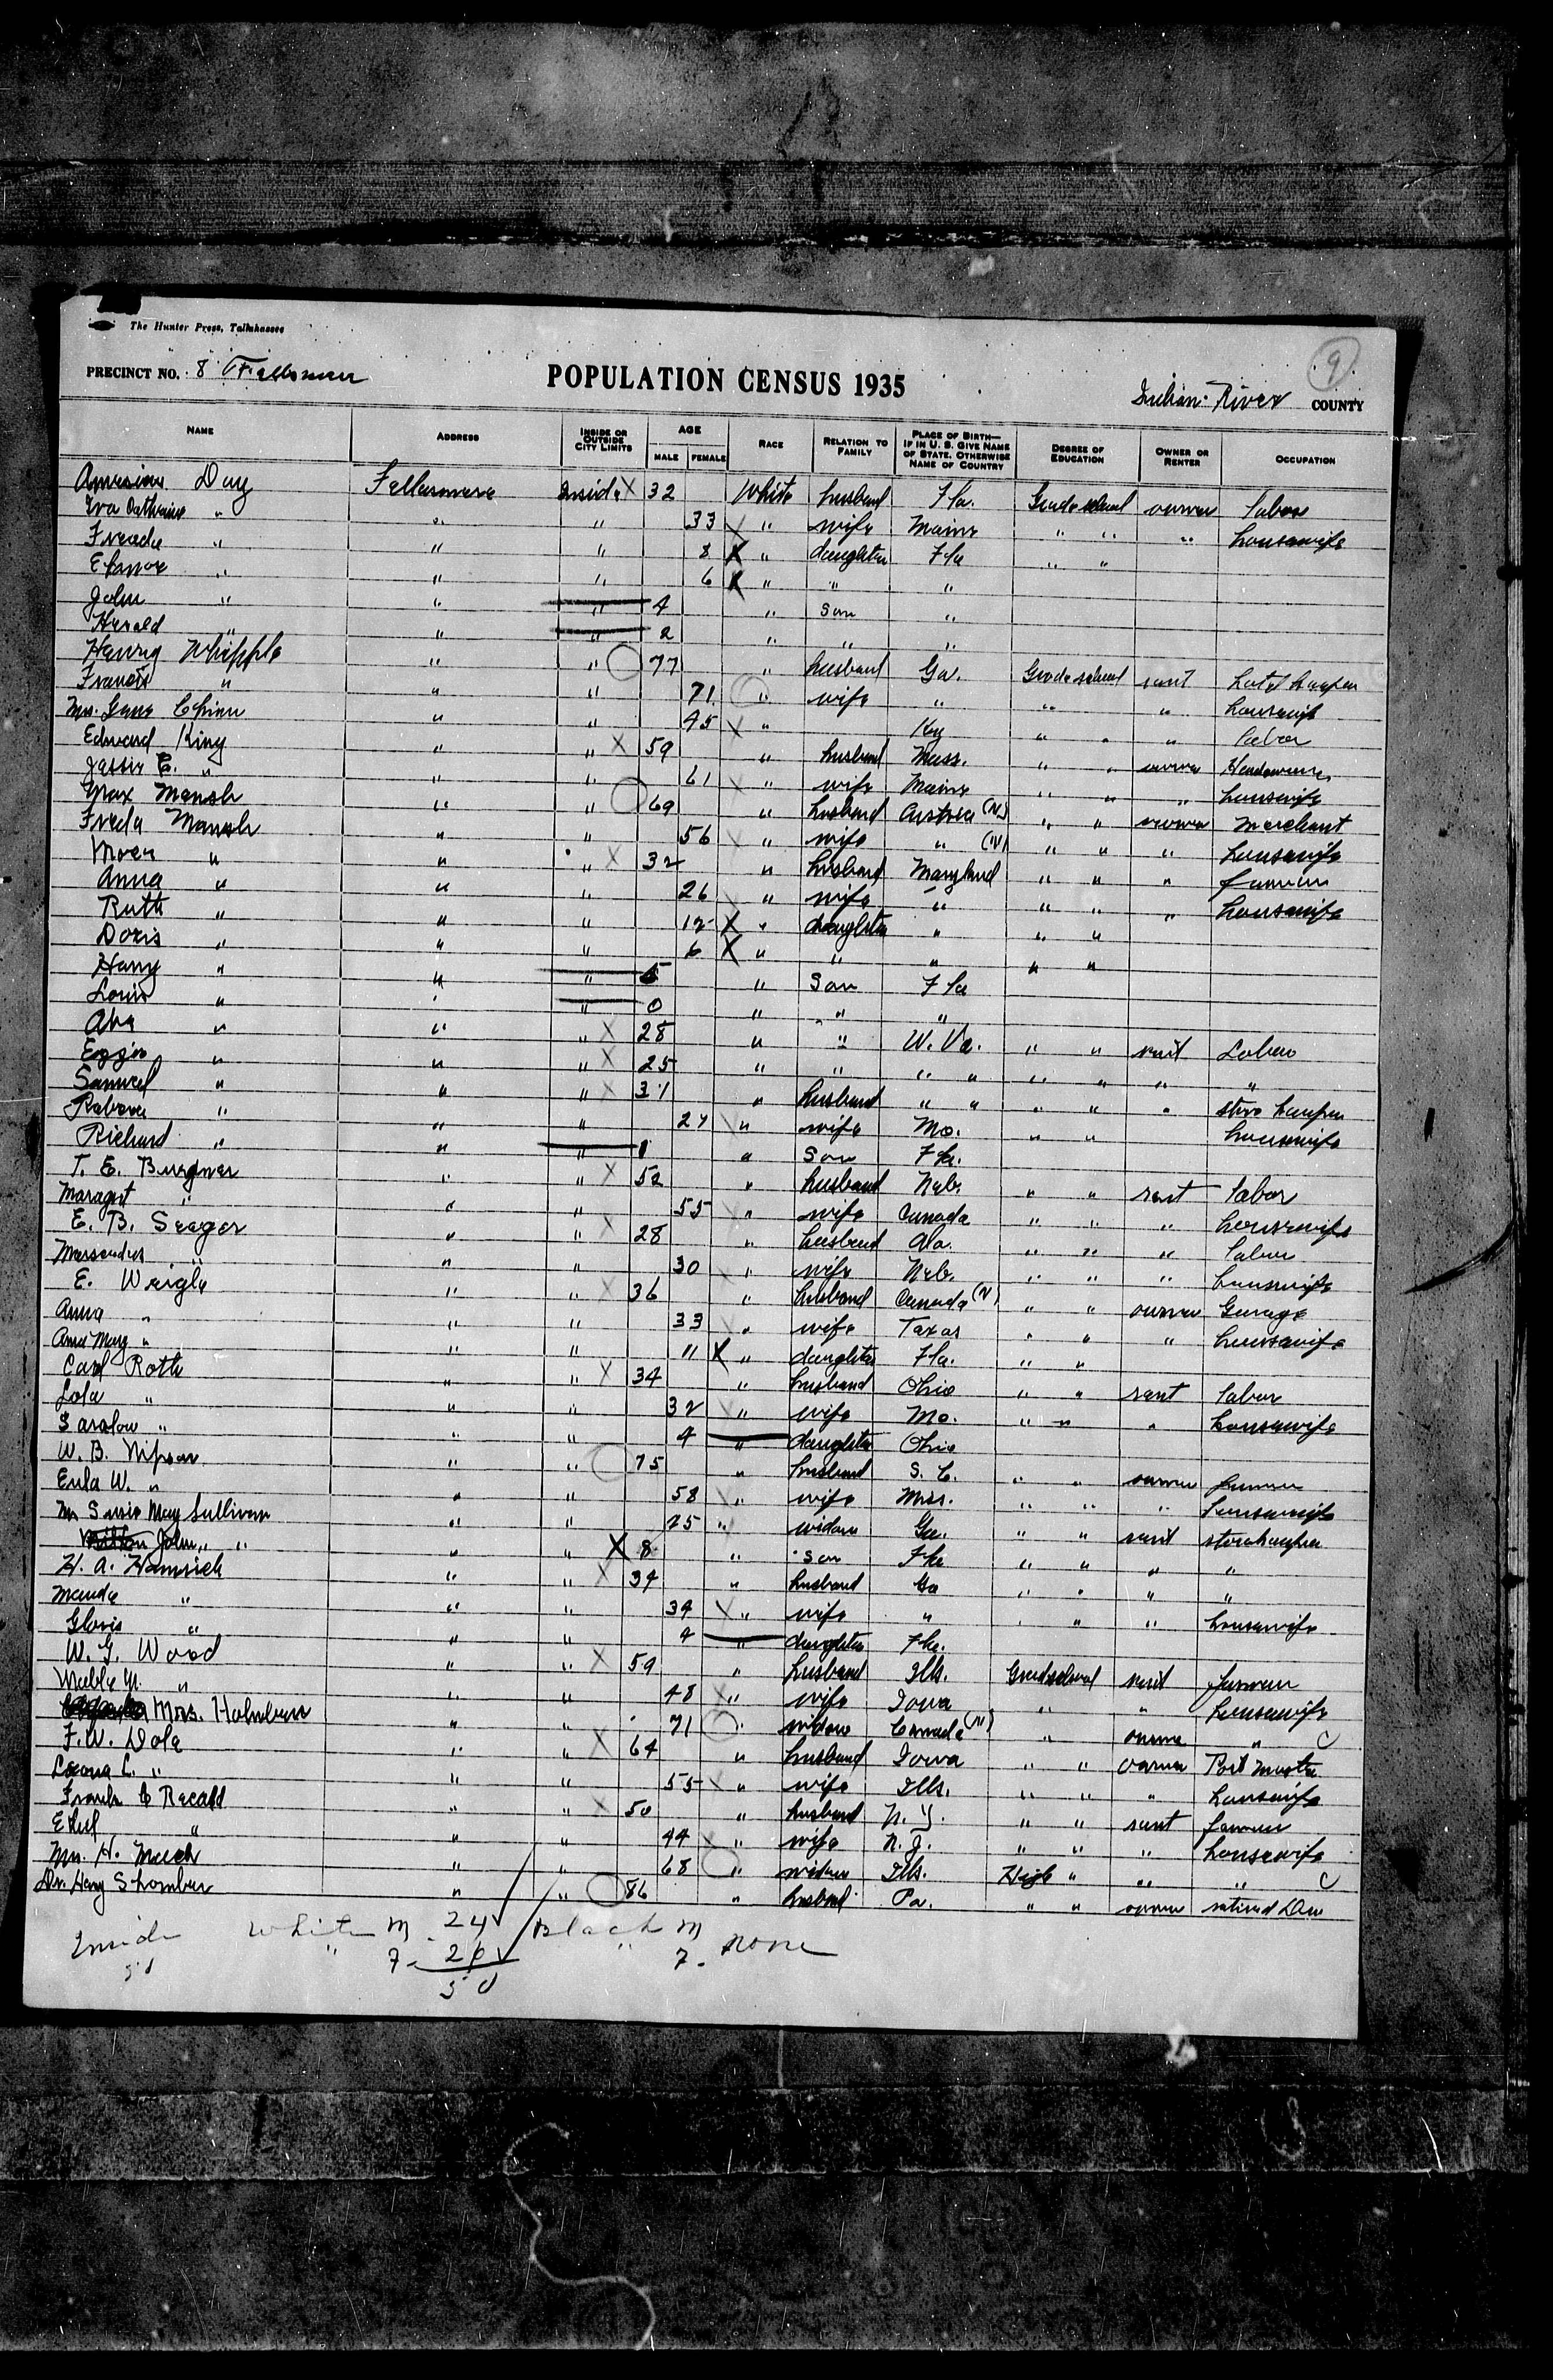 The Hunter Press, Tallahassee
9
PRECINCT NO. 8 Fellsmere POPULATION CENSUS 1935 Indian River COUNTY
NAME ADDRESS INSIDE OR OUTSIDE CITY LIMITS AGE MALE FEMALE RACE RELATION TO FAMILY PLACE OF BIRTH— IF IN U. S. GIVE NAME OF STATE. OTHERWISE NAME OF COUNTRY DEGREE OF EDUCATION OWNER OR RENTER OCCUPATION
Day Fellesmere Inside X 32 White husband Fla. Grade school owner labor
Iva Catherine " " " 33 X " wife Maine " " " housewife
Freada " " " 8 X " daughter Fla " "
Elanor " " " 6 X " " "
John " " " 4 " son "
Harald " " " 2 " " "
Henry Whipple " " 77 " husband Ga. Grade school rent
Francis " " " 71 " wife " " " housewife
Mrs. " " 45 X " Ky " " " labor
Edward King " " X 59 " husband Mass. " " owner
Jassie E. " " " 61 X " wife Maine " " " housewife
Max Mansh " " 69 " husband Austria (N) " " owner Merchant
Freda Mansh " " 56 X " wife " (N) " " " housewife
" " " X 32 " husband Maryland " " " farmer
Anna " " " 26 " wife " " " " housewife
Ruth " " " 12 X " daughter " " "
Doris " " " 6 X " " " " "
Harry " " " " Son Fla
Louis " " " 0 " " "
Abe " " " X 28 " " W. Va. " " rent Labor
" " " X 25 " " " " " " " "
Samuel " " " X 31 " husband " " " " " store keeper
" " " 27 X " wife Mo. " " housewife
Richard " " " " Son Fla.
T. E. Burgner " " X 52 " husband Neb. " " rent labor
Maragret " " " 55 X " wife Canada " " " housewife
E. B. Seeger " " X 28 " husband " " " labor
" " " 30 X " wife Neb. " " " housewife
E. Weigle " " X 36 " husband Canada (N) " " owner Garage
Anna " " " 33 X " wife Texas " " " housewife
Anna Mary " " " 11 X " daughter Fla. " "
Carl Roth " " X 34 " husband Ohio " " rent labor
Lola " " " 32 X " wife Mo. " " " housewife
" " " 4 " daughter Ohio
W. B. " " 75 " husband S. C. " " owner farmer
Eula W. " " " 58 X " wife Miss. " " " housewife
Mrs Susie May Sullivan " " 25 " widow Ga. " " rent storekeeper
John " " " X 8 " son Fla " " " "
H. A. " " X 34 " husband Ga " " " "
Maude " " " 34 X " wife " " " " housewife
Gloria " " " 4 " daughter Fla.
W. G. Wood " " X 59 " husband Ills. Grade school rent farmer
Mable M. " " " 48 X " wife Iowa " " housewife
Mrs. " " 71 " widow Canada (N) " owner " C
F. W. Dole " " X 64 " husband Iowa " " owner Post Master
Leona L. " " " 55 X " wife Ills. " " " housewife
Frank C " " X 50 " husband N. Y. " " rent farmer
Ethel " " " 44 X " wife N. J. " " " housewife
Mrs. H. " " 68 " widow Ills. High " " " C
Dr. Harry " " 86 " husband Pa. " " owner retired
Inside White M 24 Black M
50 " F. 26 " F. none
50